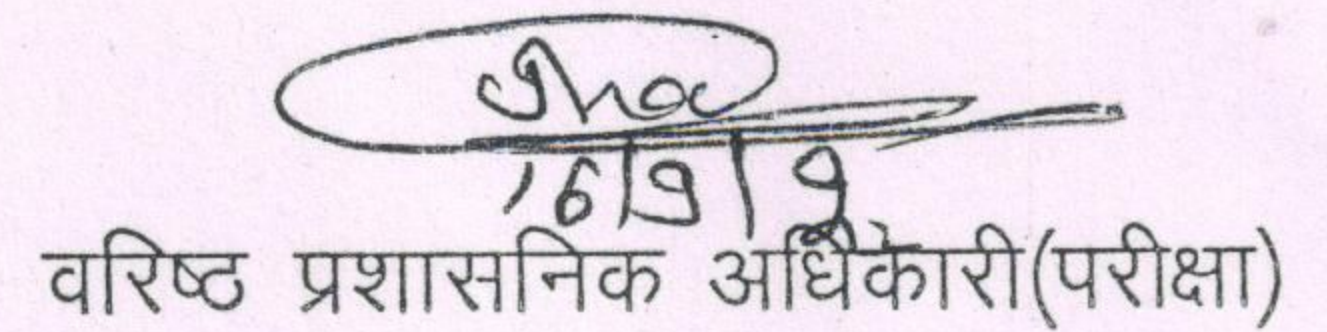 Jha
16/9/9
वरिष्ठ प्रशासनिक अधिकारी(परीक्षा)